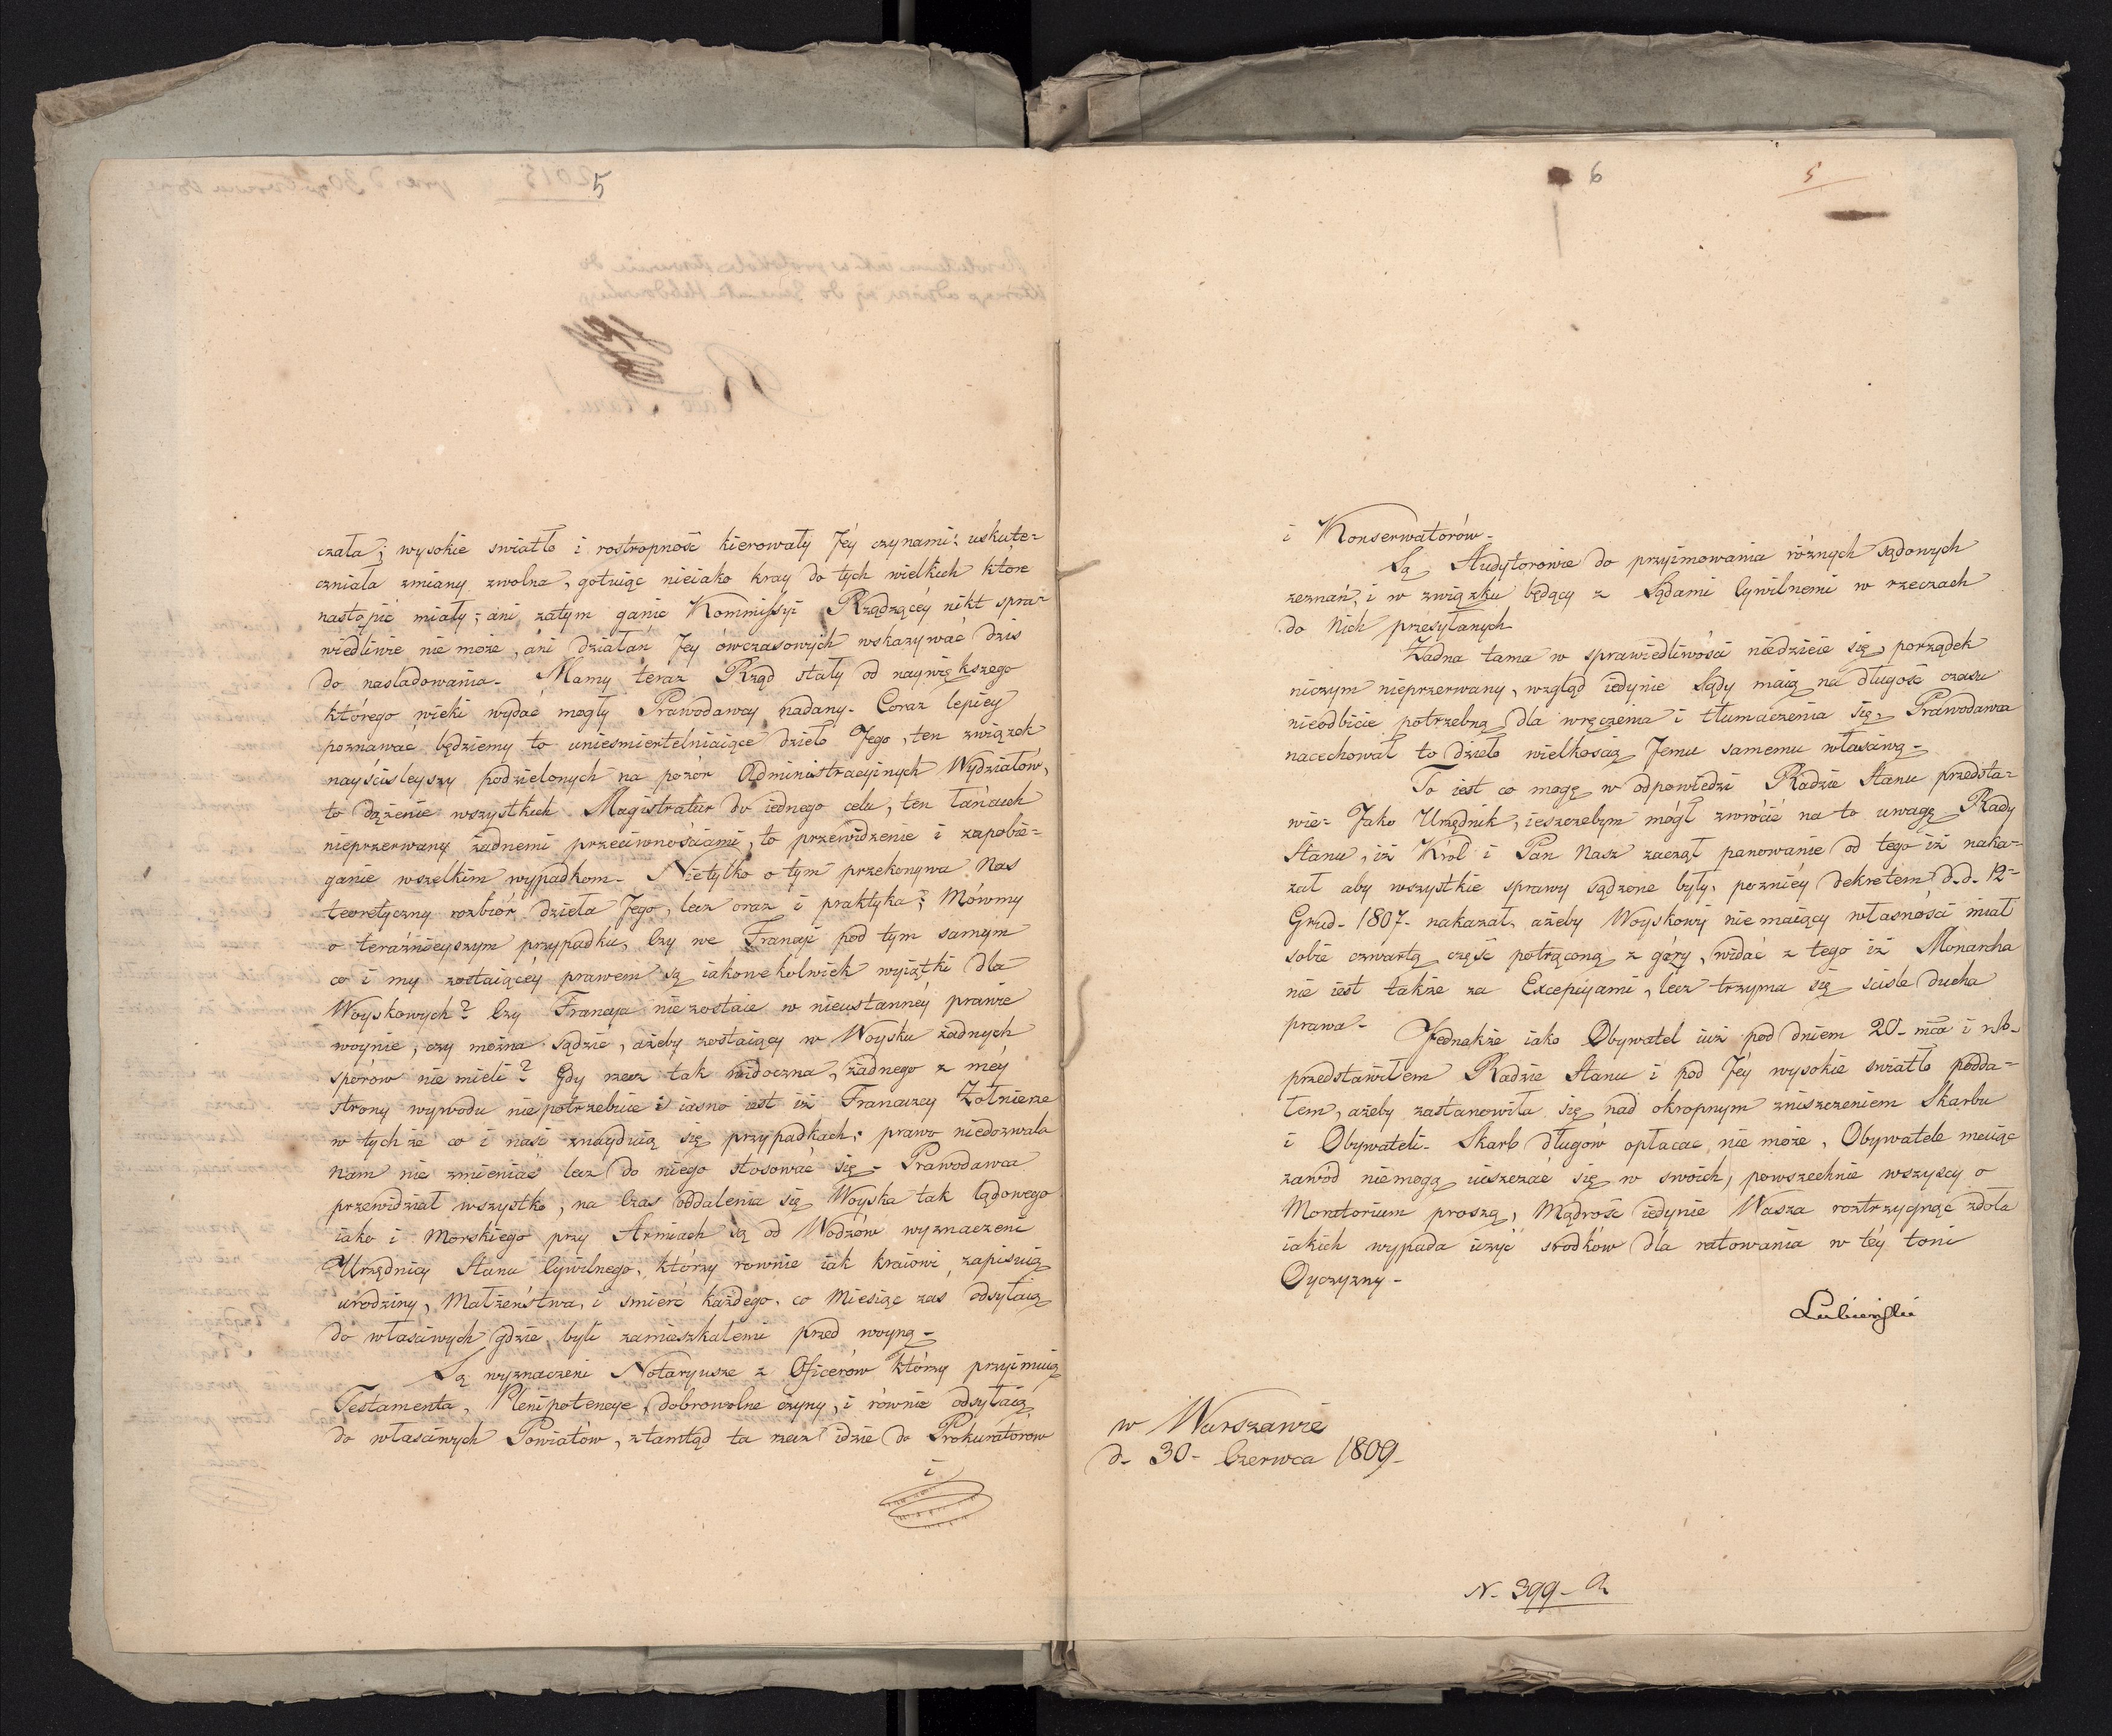 5
czała; wysokie swiatło i rostropność kierowały Jéy czynami: uskute-
czniała zmiany zwolna, gotuiąc nieiako kray do tych wielkich które
nastąpić miały; ani zatym ganić Kommissyi Rządzącéy nikt spra-
wiedliwie nie może, áni działań Jéy ówczasowych wskazywać dzis
do nasladowania. Mamy teraz Rząd stały od naywiększego
którego wieki wydać mogły Prawodawcy nadany. Coraz lepiéy
poznawać będziemy to uniesmiertelniaiące dzieło Jego, ten związek
nayściśleyszy podzielonych na pozór Administracyinych Wydziałów,
to dążenie wszystkich Magistratur do iednego celu, ten łańcuch
nieprzerwany żadnemi przeciwnościami, to przewidzenie i zapobie-
ganie wszelkim wypadkom. Nietylko o tym przekonywa Nas
teoretyczny rozbiór dzieła Jego, lecz oraz i praktyka; Mówmy
o teraźnieyszym przypadku, Czy we Francyi pod tym samym
co i my zostaiącéy prawem są iakowekolwiek wyiątki dla
Woyskowych? Czy Francya nie zostaie w nieustannéy prawie
woynie, czy można sądzić, ażeby zostaiący w Woysku żadnych
sporów nie mieli? Gdy rzecz tak widoczna, żadnego z méy
strony wywodu niepotrzebuie i iasno iest iż Francuzcy Zołnierze
w tychże co i nasi znayduią się przypadkach; prawo niedozwala
nam nie zmieniać lecz do niego stosować się. Prawodawca
przewidział wszystko, na Czas oddalenia się Woyska tak lądowego
iako i Morskiego przy Armiach są od Wodzów wyznaczeni
Urzędnicy Stanu Cywilnego, którzy rownie iak kraiowi zapisuią
urodziny, Małżeństwa, i smierć każdego, co Miesiąc zas odsyłaią
do własciwych gdzie byli zamieszkałemi przed woyną.
Są wyznaczeni Notaryusze z Oficerów którzy przyimuią
Testamenta, Plenipotencye, dobrowolne czyny, i równie odsyłaią
do własciwych Powiatów, ztamtąd ta rzecz idzie do Prokuratorów
i
6
5
i Konserwatorów.
Są Audytorowie do przyimowania różnych sądowych
zeznań, i w związku będący z Sądami Cywilnemi w rzeczach
do Nich przesyłanych
Zadna tama w sprawiedliwości niedzieie się, porządek
niczym nieprzerwany, wzgląd iedynie Sądy maią na długość czasu
nieodbicie potrzebną dla wręczenia i tłumaczenia się. Prawodawca
nacechował to dzieło wielkoscią Jemu samemu własciwą.
To iest co mogę w odpowiedzi Radzie Stanu przedsta-
wić. Jako Urzędnik, ieszczebym mógł zwrócić na to uwagę Rady
Stanu, iż Król i Pan Nasz zaczął panowanie od tego iż naka-
zał aby wszystkie sprawy sądzone były, poźniéy dekretem d. d. 12
Grud. 1807. nakazał, ażeby Woyskowy nie maiący własności miał
sobie czwartą część potrąconą z góry, widać z tego iż Monarcha
nie iest także za Excepcyami, lecz trzyma się scisle ducha
prawa.
Jednakże iako Obywatel iuż pod dniem 20. mca i rb.
przedstawiłem Radzie Stanu i pod Jéy wysokie swiatło podda-
łem, ażeby zastanowiła się nad okropnym zniszczeniem Skarbu
i Obywateli. Skarb długów opłacac nie może, Obywatele maiąc
zawód niemogą uiszczać się w swoich, powszechnie wszyscy o
Moratorium proszą, Mądrość iedynie Wasza roztrzygnąć zdoła
iakich wypada użyć srodków dla ratowania w téy toni
Oyczyzny.
Łubieński
w Warszawie
d. 30. Czerwca 1809.
N. 399.